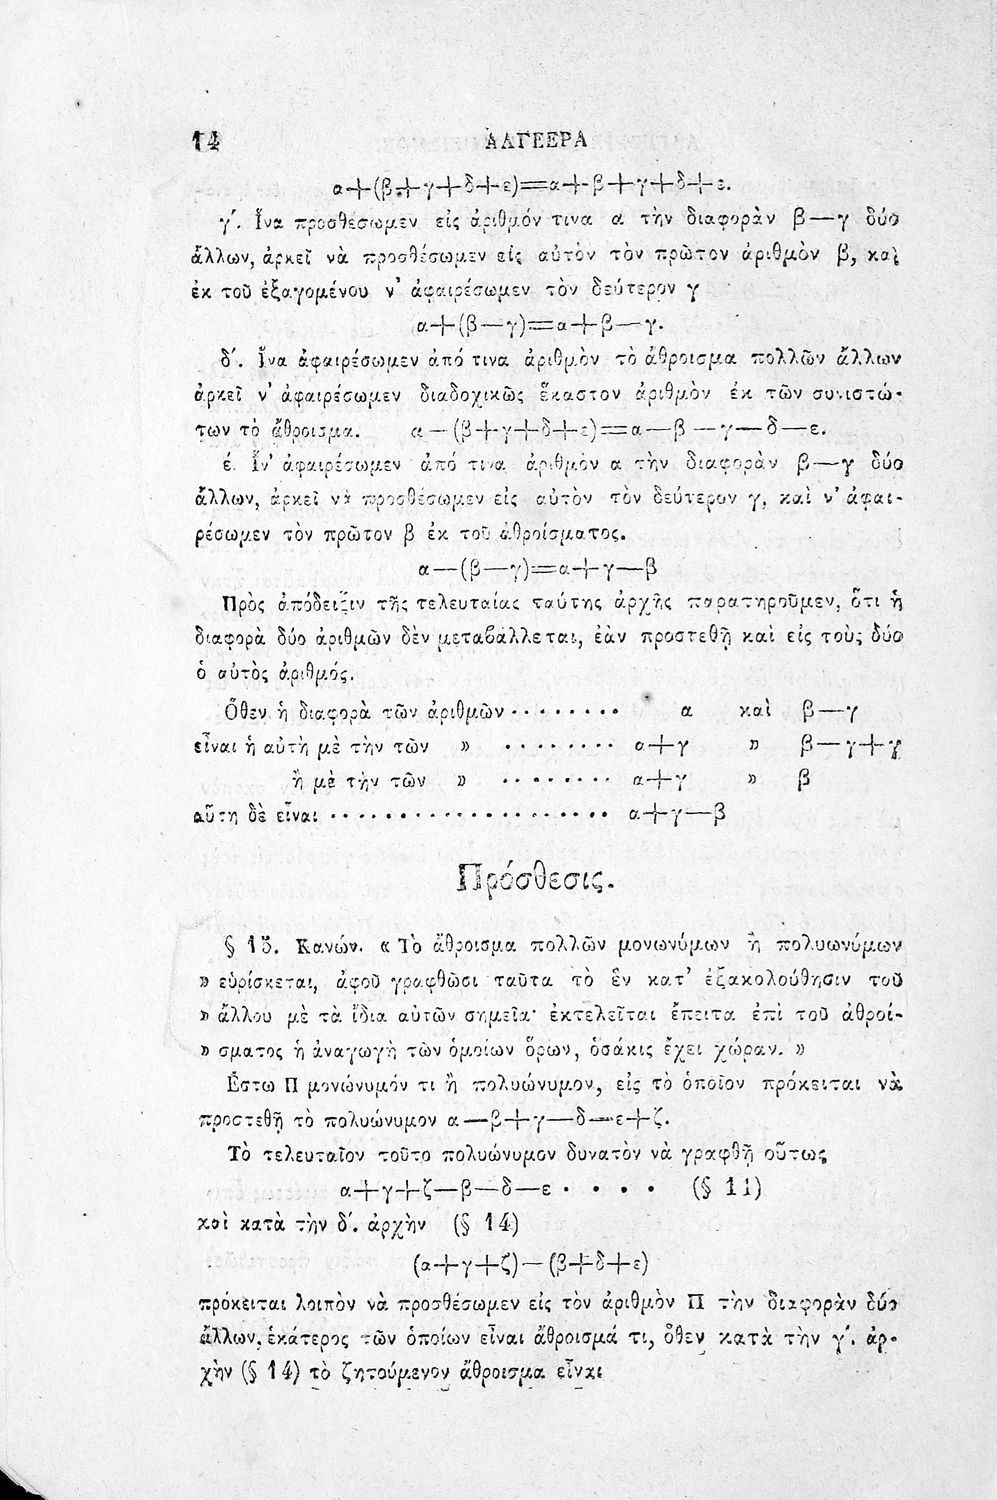 14 ΑΛΓΕΒΡΑ
α+(β+γ+δ+ε)=α+β+γ+δ+ε.
γ΄. Ἵνα προσθέσωμεν εἰς ἀριθμόν τινα α τὴν διαφορὰν β—γ δύο
ἄλλων, ἀρκεῖ νὰ προσθέσωμεν εἰς αὐτὸν τὸν πρῶτον ἀριθμὸν β, καὶ
ἐκ τοῦ ἐξαγομένου ν' ἀφαιρέσωμεν τὸν δεύτερον γ
α+(β—γ)=α+β—γ.
δ΄. Ἵνα ἀφαιρέσωμεν ἀπό τινα ἀριθμὸν τὸ ἄθροισμα πολλῶν ἄλλων
ἀρκεῖ ν' ἀφαιρέσωμεν διαδοχικῶς ἕκαστον ἀριθμὸν ἐκ τῶν συνιστώ-
των τὸ ἄθροισμα. α—(β+γ+δ+ε)=α—β—γ—δ—ε.
έ. Ἵν' ἀφαιρέσωμεν ἀπό τινα ἀριθμὸν α τὴν διαφορὰν β—γ δύο
ἄλλων, ἀρκεῖ νὰ προσθέσωμεν εἰς αὐτὸν τὸν δεύτερον γ, καὶ ν' ἀφαι-
ρέσωμεν τὸν πρῶτον β ἐκ τοῦ ἀθροίσματος.
α—(β—γ)=α+γ—β
Πρὸς ἀπόδειξιν τῆς τελευταίας ταύτης ἀρχῆς παρατηροῦμεν, ὅτι ἡ
διαφορὰ δύο ἀριθμῶν δὲν μεταβάλλεται, ἐὰν προστεθῇ καὶ εἰς τοὺς δύο
ὁ αὐτὸς ἀριθμός.
Ὅθεν ἡ διαφορὰ τῶν ἀριθμῶν ........ α καὶ β—γ
εἶναι ἡ αὐτὴ μὲ τὴν τῶν » ........ α+γ » β—γ+γ
ἢ μὲ τὴν τῶν » ........ α+γ » β
αὕτη δὲ εἶναι ..................... α+γ—β
Πρόσθεσις.
§ 15. Κανών. « Τὸ ἄθροισμα πολλῶν μονωνύμων ἢ πολυωνύμων
» εὑρίσκεται, ἀφοῦ γραφθῶσι ταῦτα τὸ ἓν κατ' ἐξακολούθησιν τοῦ
» ἄλλου μὲ τὰ ἴδια αὐτῶν σημεῖα· ἐκτελεῖται ἔπειτα ἐπὶ τοῦ ἀθροί-
» σματος ἡ ἀναγωγὴ τῶν ὁμοίων ὅρων, ὁσάκις ἔχει χώραν. »
Ἔστω Π μονώνυμόν τι ἢ πολυώνυμον, εἰς τὸ ὁποῖον πρόκειται νὰ
προστεθῇ τὸ πολυώνυμον α—β+γ—δ—ε+ζ.
Τὸ τελευταῖον τοῦτο πολυώνυμον δυνατὸν νὰ γραφθῇ οὕτως
α+γ+ζ—β—δ—ε . . . . (§ 11)
καὶ κατὰ τὴν δ΄. ἀρχὴν (§ 14)
(α+γ+ζ)—(β+δ+ε)
πρόκειται λοιπὸν νὰ προσθέσωμεν εἰς τὸν ἀριθμὸν Π τὴν διαφορὰν δύο
ἄλλων, ἑκάτερος τῶν ὁποίων εἶναι ἄθροισμά τι, ὅθεν κατὰ τὴν γ΄. ἀρ-
χὴν (§ 14) τὸ ζητούμενον ἄθροισμα εἶναι